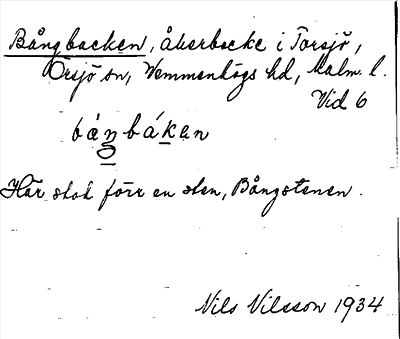 Bångbacken, åkerbacke i Torsjö,
Örsjö sn, Vemmenhögs hd, Malm. l.
Vid 6
båŋbáken
Här stod förr en sten, Bångstenen.
Nils Nilsson 1934